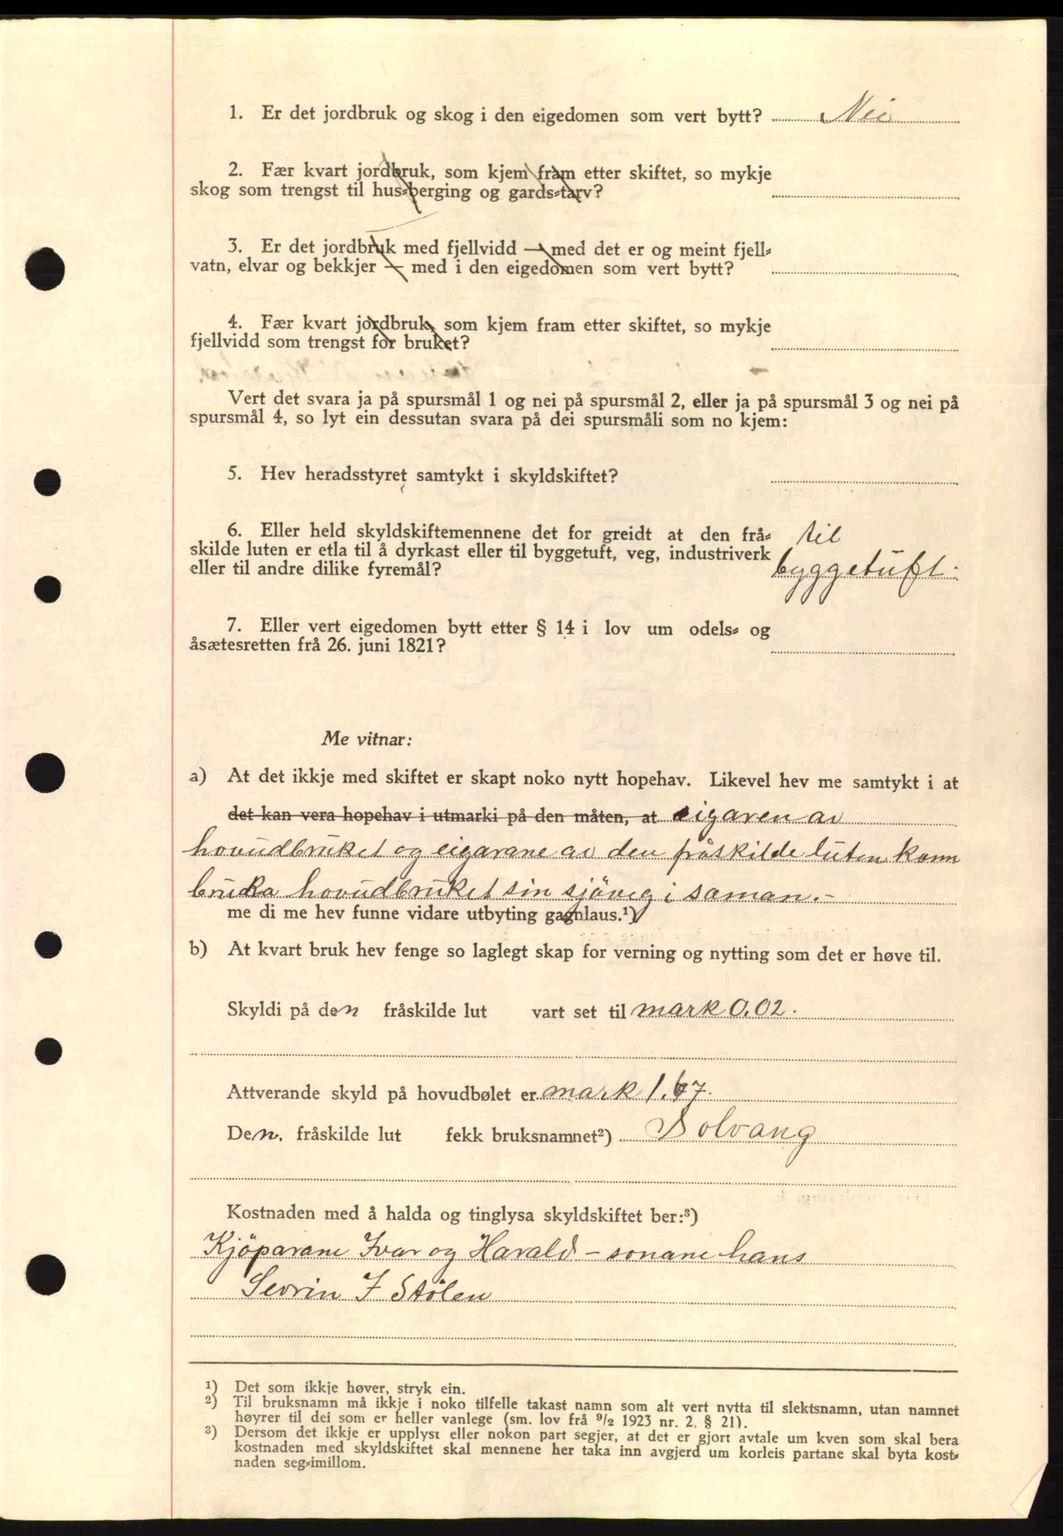 1. Er det jordbruk og skog i den eigedomen som vert bytt? Nei
2. Fær kvart jordbruk, som kjem fram etter skiftet, so mykje
skog som trengst til hus-berging og gards-tarv?
3. Er det jordbruk med fjellvidd — med det er og meint fjell-
vatn, elvar og bekkjer — med i den eigedomen som vert bytt?
4. Fær kvart jordbruk, som kjem fram etter skiftet, so mykje
fjellvidd som trengst for bruket?
Vert det svara ja på spursmål 1 og nei på spursmål 2, eller ja på spursmål 3 og nei på
spursmål 4, so lyt ein dessutan svara på dei spursmåli som no kjem:
5. Hev heradsstyret samtykt i skyldskiftet?
6. Eller held skyldskiftemennene det for greidt at den frå- til
skilde luten er etla til å dyrkast eller til byggetuft, veg, industriverk byggetuft.
eller til andre dilike fyremål?
7. Eller vert eigedomen bytt etter § 14 i lov um odels- og
åsætesretten frå 26. juni 1821?
Me vitnar:
a) At det ikkje med skiftet er skapt noko nytt hopehav. Likevel hev me samtykt i at
det kan vera hopehav i utmarki på den måten, at eigaren av
hovudbruket og eigarane av den fråskilde luten kann
bruka hovudbruket sin sjöveg i saman.-
me di me hev funne vidare utbyting gagnlaus.¹)
b) At kvart bruk hev fenge so laglegt skap for verning og nytting som det er høve til.
Skyldi på den fråskilde lut vart set til mark 0,02.
Attverande skyld på hovudbølet er mark 1.67.
Den. fråskilde lut fekk bruksnamnet²) Solvang
Kostnaden med å halda og tinglysa skyldskiftet ber:³)
Kjöparane Ivar og Harald - sonane hans
Sevrin I Stölen
¹) Det som ikkje høver, stryk ein.
²) Til bruksnamn må ikkje i noko tilfelle takast namn som alt vert nytta til slektsnamn, utan namnet
høyrer til dei som er heller vanlege (sm. lov frå 9/2 1923 nr. 2. § 21).
³) Dersom det ikkje er upplyst eller nokon part segjer, at det er gjort avtale um kven som skal bera
kostnaden med skyldskiftet skal mennene her taka inn avgjerd um korleis partane skal byta kost-
naden seg-imillom.